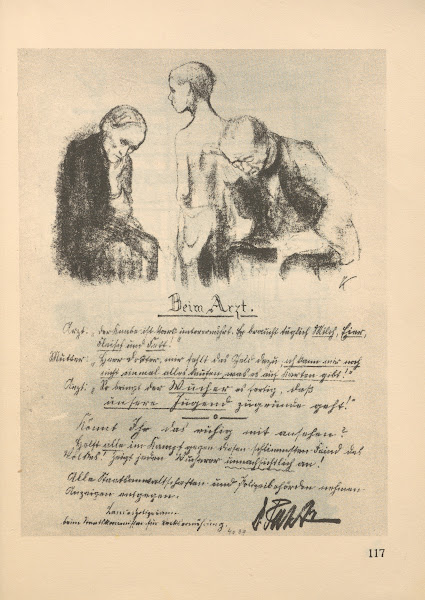 Beim Arzt.
Arzt: „Der Knabe ist stark unterernährt. Er braucht täglich Milch, Eier,
Fleisch und Fett!“
Mutter: „Herr Doktor, mir fehlt das Geld dazu, ich kann mir noch
nicht einmal alles kaufen, was es auf Karten gibt!“
Arzt: „So bringt der Wucher es fertig, daß
unsere Jugend zugrunde geht!“
Könnt Ihr das ruhig mit ansehen?
Helft alle im Kampf gegen diesen schlimmsten Feind des
Volkes! Zeigt jeden Wucherer unnachsichtlich an!
Alle Staatsanwaltschaften und Polizeibehörden nehmen
Anzeigen entgegen.
Landespolizeiamt
beim Staatskommissar für Volksernährung.
117